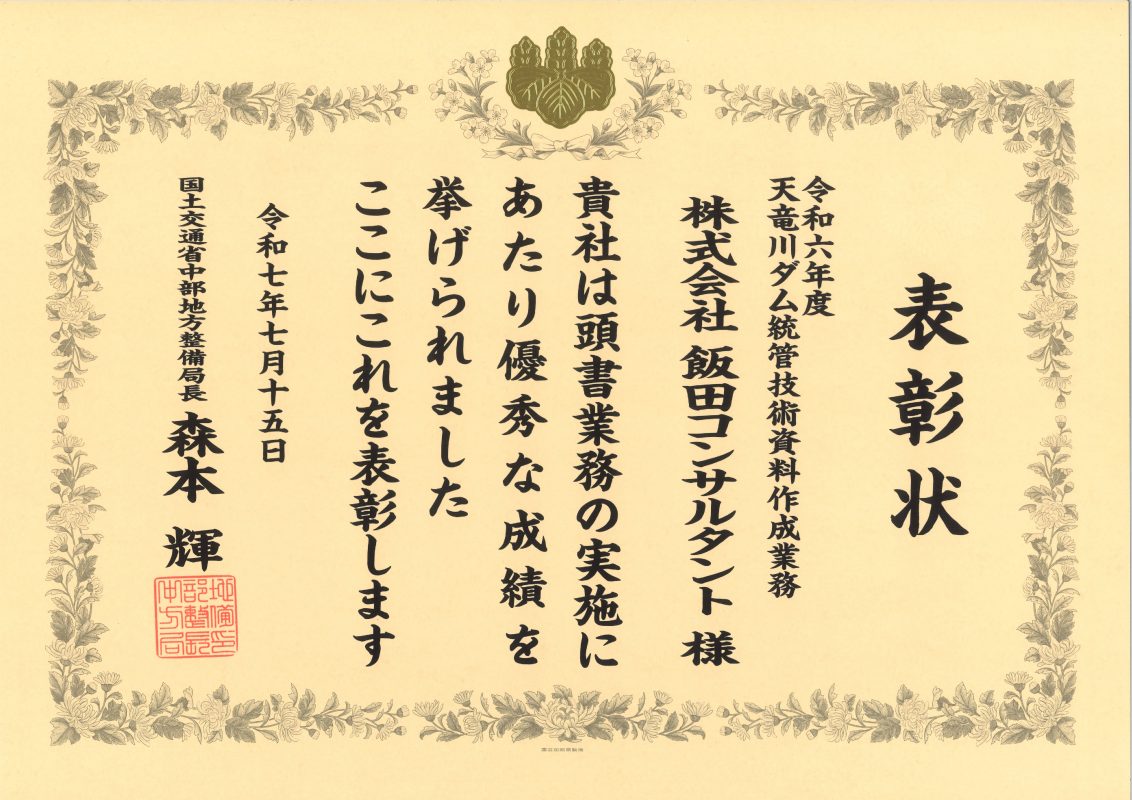 表彰状
令和六年度
天竜川ダム統管技術資料作成業務
株式会社 飯田コンサルタント 様
貴社は頭書業務の実施に
あたり優秀な成績を
挙げられました
ここにこれを表彰します
令和七年七月十五日
国土交通省中部地方整備局長 森本 輝